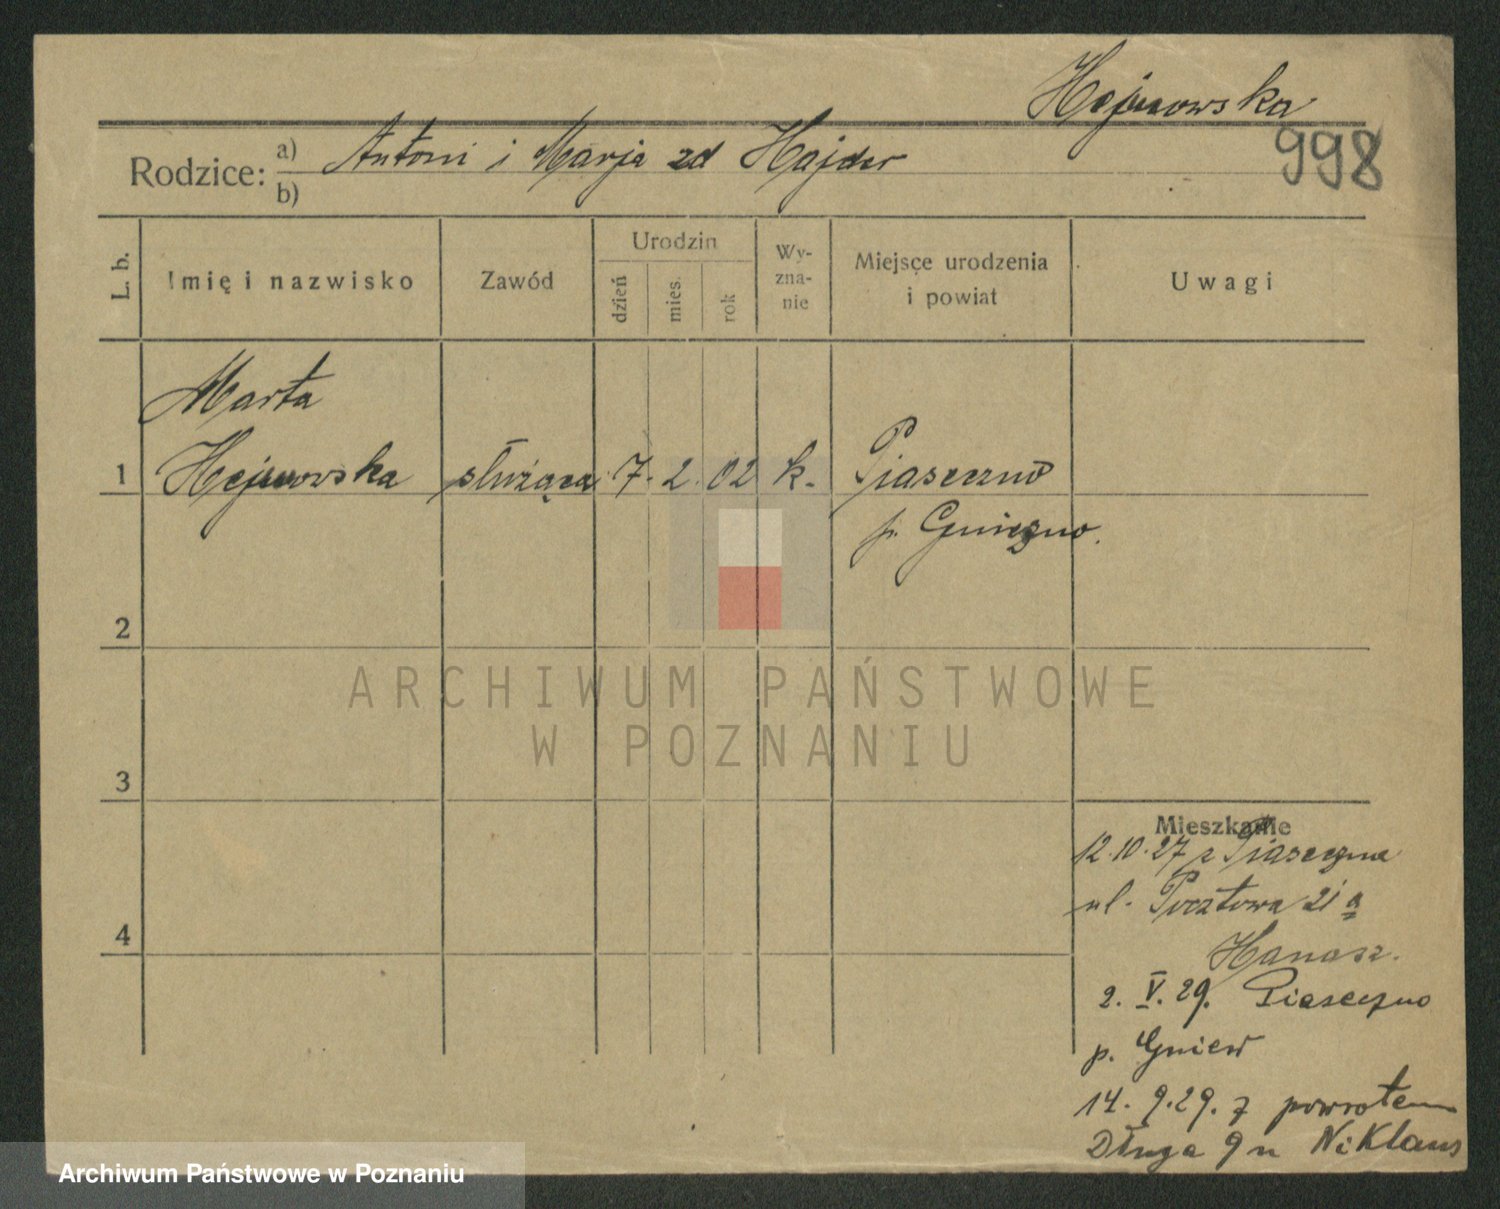 Hejnowska
998
Rodzice: a) Antoni i Marja zd Hajder
b)
L. b.
Imię i nazwisko
Zawód
Urodzin
dzień
mies.
rok
Wy-
zna-
nie
Miejsce urodzenia
i powiat
Uwagi
Marta
1 Hejnowska służąca 7. 2. 02 k. Piaseczno
p. Gniezno.
2
ARCHIWUM PAŃSTWOWE
W POZNANIU
3
Mieszkanie
12.10.27 z Piaseczna
ul. Pocztowa 21 a
4
Hanasz.
2. V. 29. Piaseczno
p. Gniew
14. 9. 29. z powrotem
Długa 9 u Niklaus
Archiwum Państwowe w Poznaniu